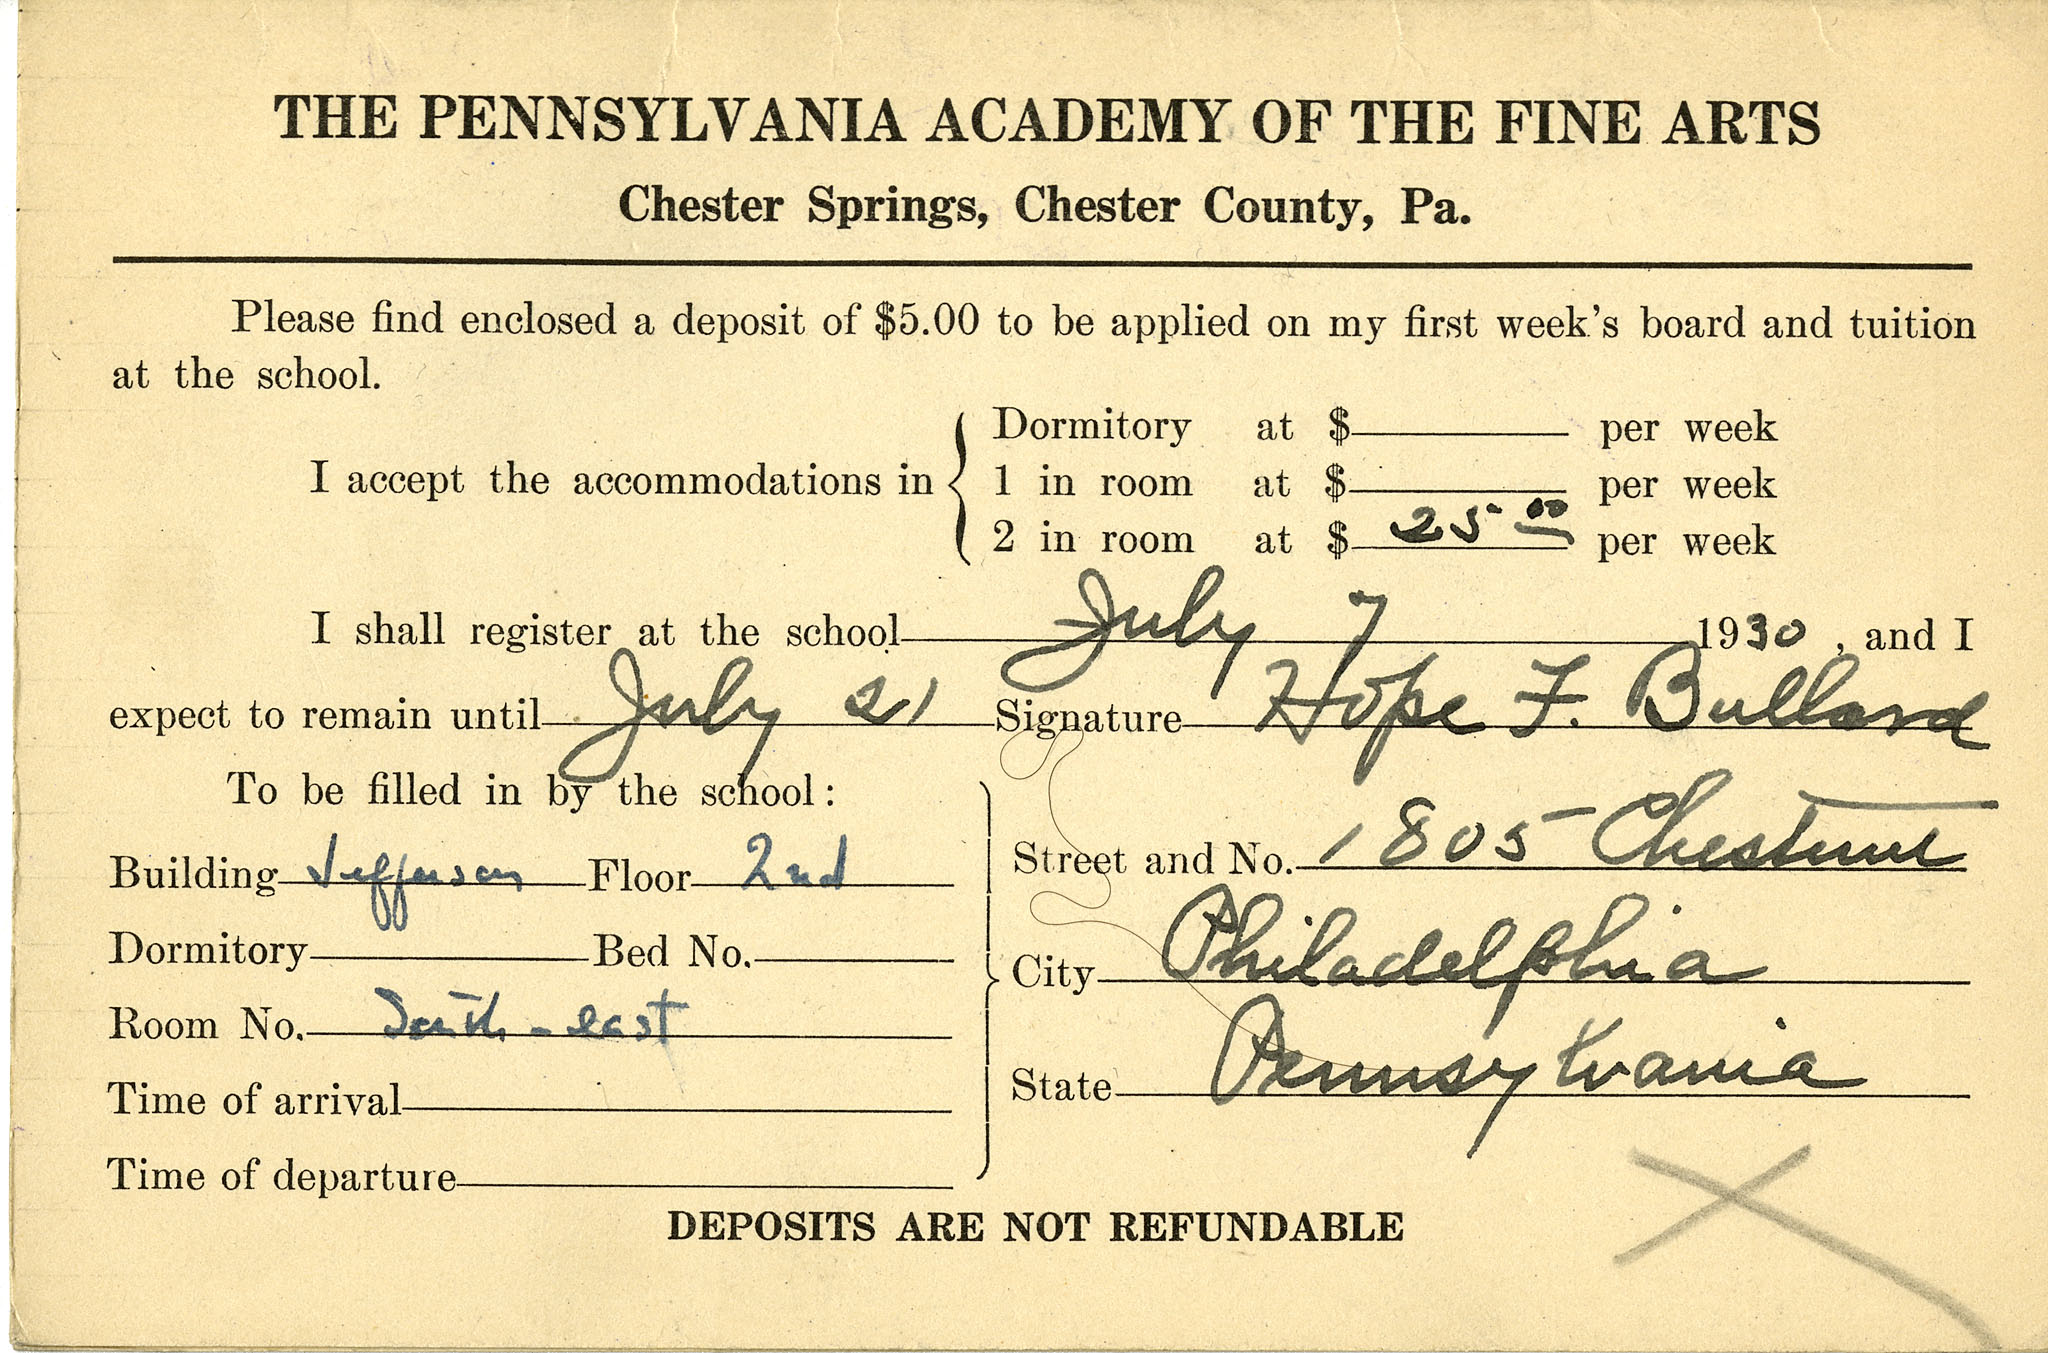 THE PENNSYLVANIA ACADEMY OF THE FINE ARTS
Chester Springs, Chester County, Pa.
Please find enclosed a deposit of $5.00 to be applied on my first week's board and tuition
at the school.
Dormitory at $ per week
I accept the accommodations in 1 in room at $ per week
2 in room at $ 25 00 per week
I shall register at the school July 7 1930, and I
expect to remain until July 21 Signature Hope F. Bullard
To be filled in by the school:
Building Jefferson Floor 2nd
Street and No. 1805 Chestnut
Dormitory Bed No.
City Philadelphia
Room No. South-east
State Pennsylvania
Time of arrival
Time of departure
DEPOSITS ARE NOT REFUNDABLE